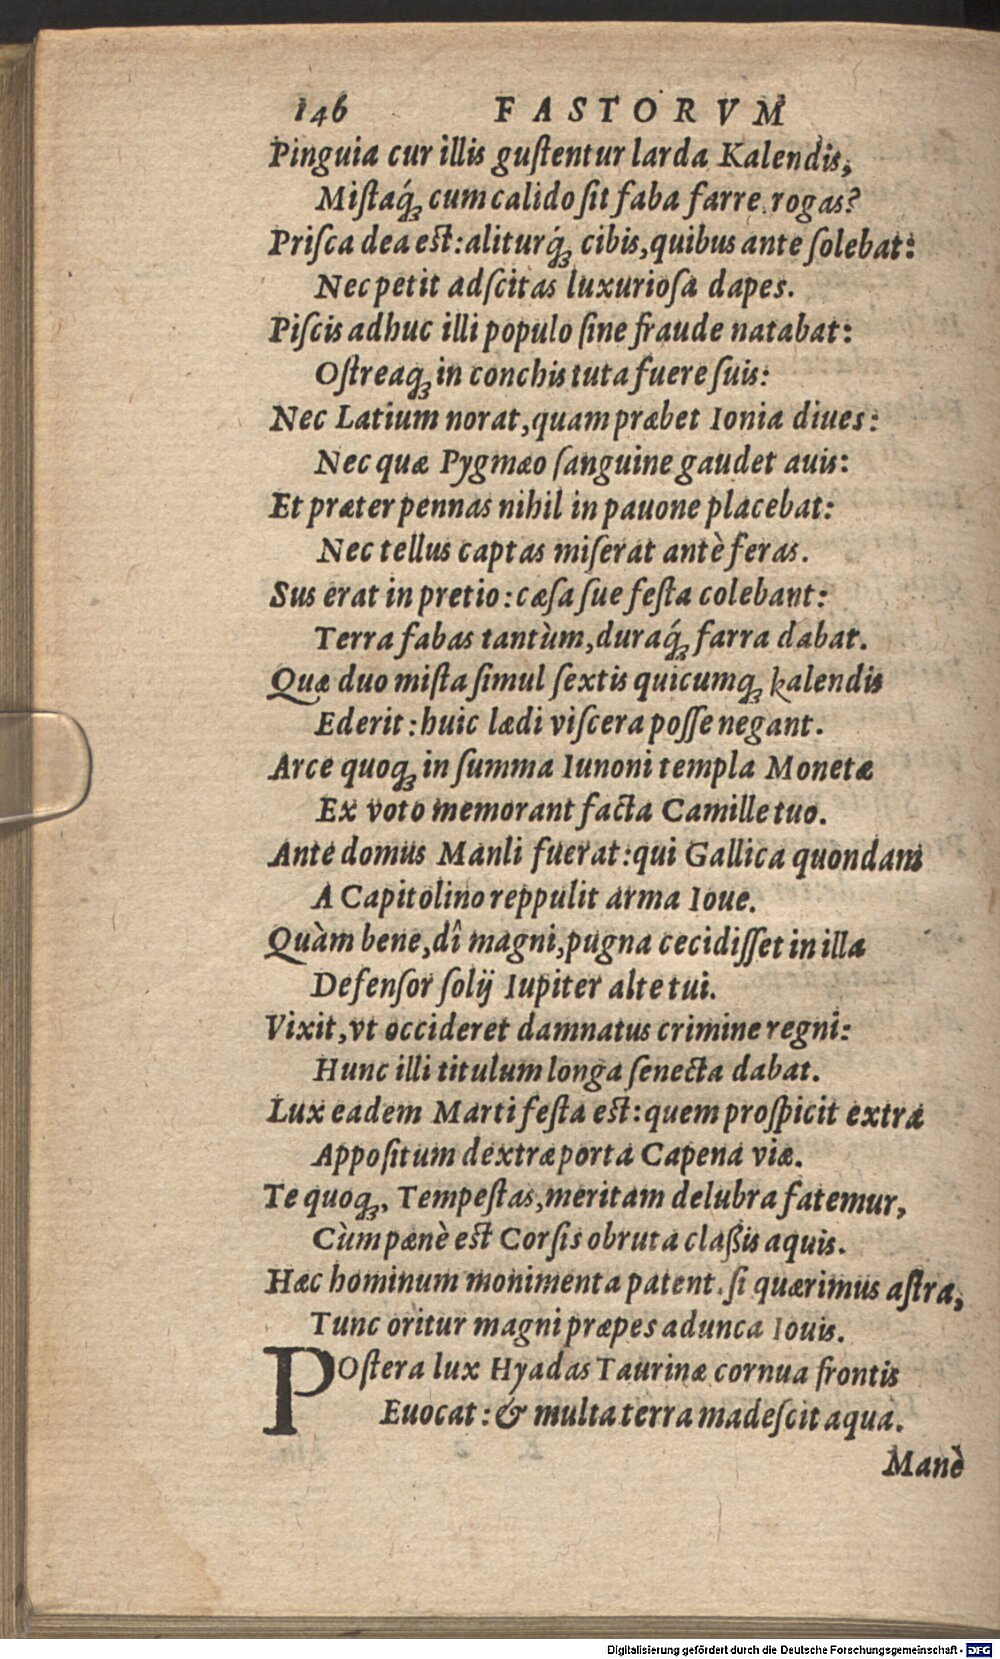 146 FASTORVM
Pinguia cur illis guſtentur larda Kalendis,
Miſtaq́ꝫ cum calido ſit faba farre rogas?
Priſca dea eſt: aliturq́ꝫ cibis, quibus ante ſolebat:
Nec petit adſcitas luxurioſa dapes.
Piſcis adhuc illi populo ſine fraude natabat:
Oſtreaqꝫ in conchis tuta fuere ſuis:
Nec Latium norat, quam præbet Ionia diues:
Nec quæ Pygmæo ſanguine gaudet auis:
Et præter pennas nihil in pauone placebat:
Nec tellus captas miſerat antè feras.
Sus erat in pretio: cæſa ſue feſta colebant:
Terra fabas tantùm, duraq́ꝫ farra dabat.
Quæ duo miſta ſimul ſextis quicumqꝫ kalendis
Ederit: huic lædi viſcera poſſe negant.
Arce quoqꝫ in ſumma Iunoni templa Monetæ
Ex voto memorant facta Camille tuo.
Ante domus Manli fuerat: qui Gallica quondam
A Capitolino reppulit arma Ioue.
Quàm bene, dî magni, pugna cecidiſſet in illa
Defenſor ſolij Iupiter alte tui.
Vixit, vt occideret damnatus crimine regni:
Hunc illi titulum longa ſenecta dabat.
Lux eadem Marti feſta eſt: quem proſpicit extra
Appoſitum dextræ porta Capena viæ.
Te quoqꝫ, Tempeſtas, meritam delubra fatemur,
Cùm pænè eſt Corſis obruta claßis aquis.
Hæc hominum monimenta patent. ſi quærimus aſtra,
Tunc oritur magni præpes adunca Iouis.
POſtera lux Hyadas Taurinæ cornua frontis
Euocat: & multa terra madeſcit aqua.
Manè
Digitalisierung gefördert durch die Deutsche Forschungsgemeinschaft - DFG